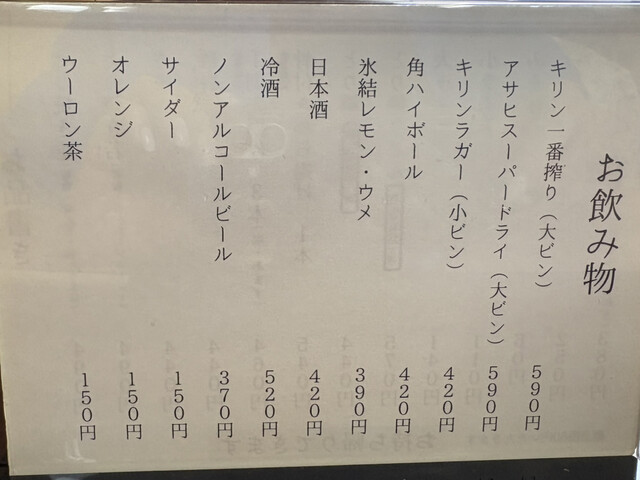 お飲み物
キリン一番搾り（大ビン） 590円
アサヒスーパードライ（大ビン） 590円
キリンラガー（小ビン） 420円
角ハイボール 420円
氷結レモン・ウメ 390円
日本酒 420円
冷酒 520円
ノンアルコールビール 370円
サイダー 150円
オレンジ 150円
ウーロン茶 150円